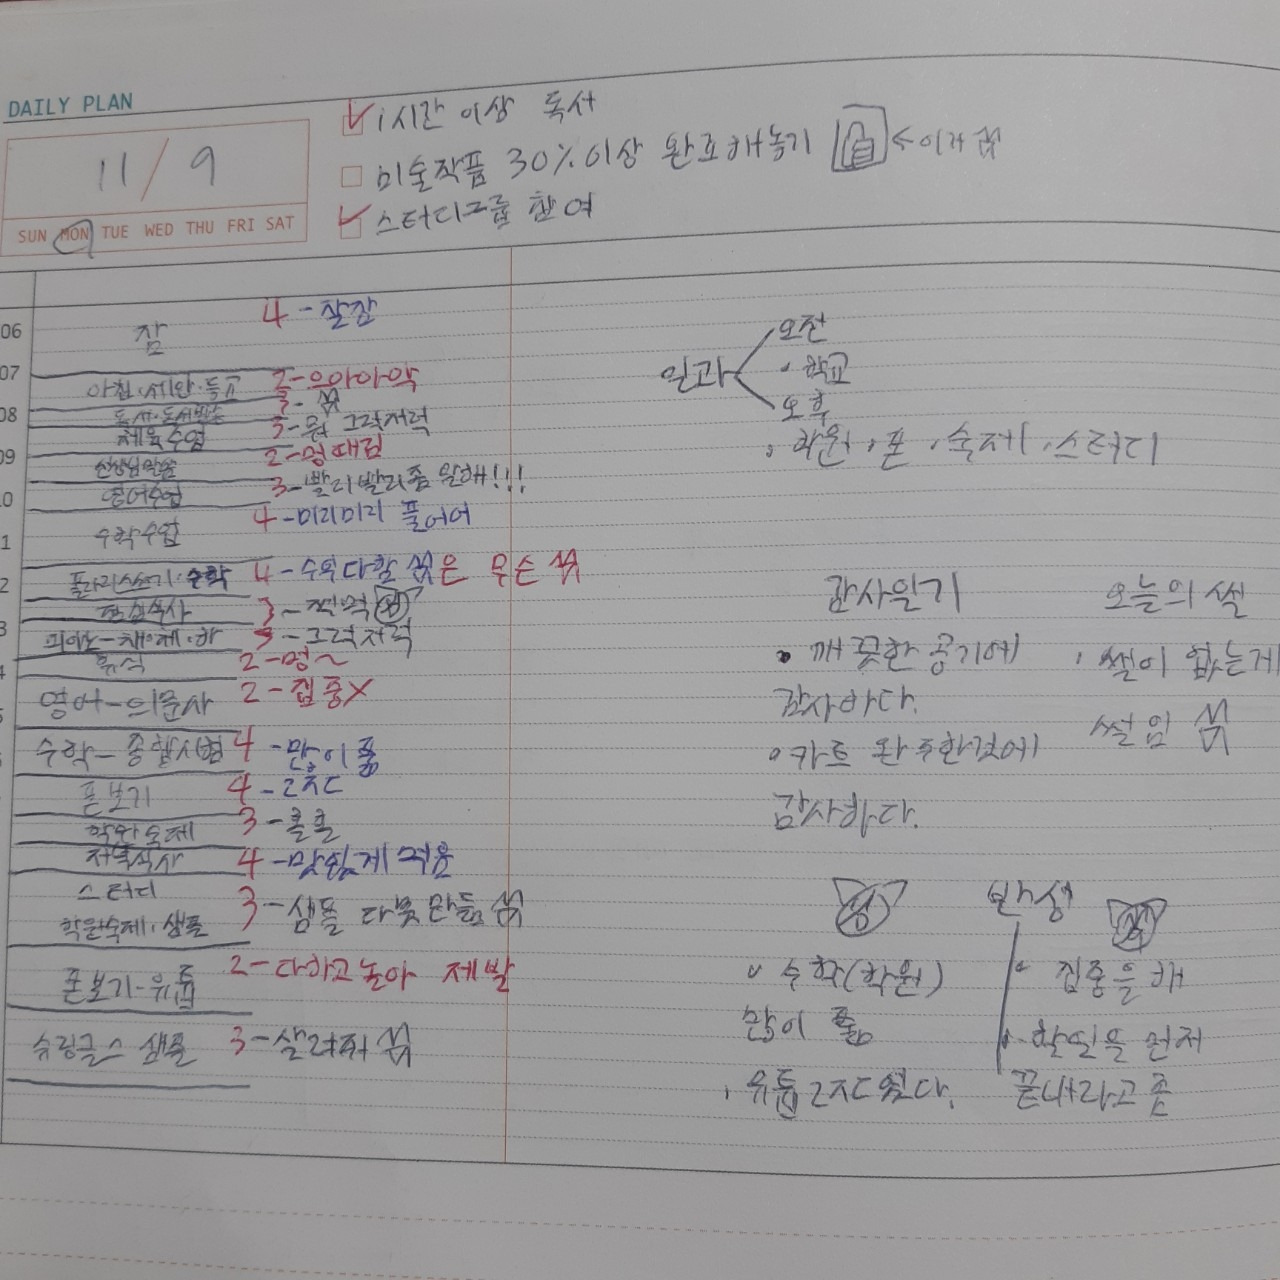 DAILY PLAN
11/9
SUN MON TUE WED THU FRI SAT
1시간 이상 독서
미술작품 30%이상 완료해놓기 ←이거
스터디그룹 참여
06 잠 4-잘잠
07 아침·세안·등교 2-으아아악
08 독서·도서반납 3-
체육수업 3-뭐 그럭저럭
09 선생님말씀 2-멍때림
영어수업 3-빨리빨리좀 말해!!!
수학수업 4-미리미리 풀어어
수학 4-수익다할 은 무슨
점심식사 3-
피아노-체·제·하 3-그럭저럭
휴식 2-멍~
영어-의문사 2-집중X
수학-종합시험 4-많이품
폰보기 4-ㄹㅈㄷ
학원숙제 3-흘흘
저녁식사 4-맛있게 먹음
스터디
학원숙제·샘플 3-샘플 다못만듦
폰보기-유튭 2-다하고놀아 제발
슈링클스 샘플 3-살려줘
일과
오전
·학교
오후
·학원·폰·숙제·스터디
감사일기
·깨끗한 공기에
감사하다.
·카트 완주한것에
감사하다.
오늘의 썰
·썰이 없는게
썰임
반성
·수학(학원)
많이 풂
·유튭ㄹㅈㄷ였다.
·집중을 해
·할일을 먼저
끝내라고 좀